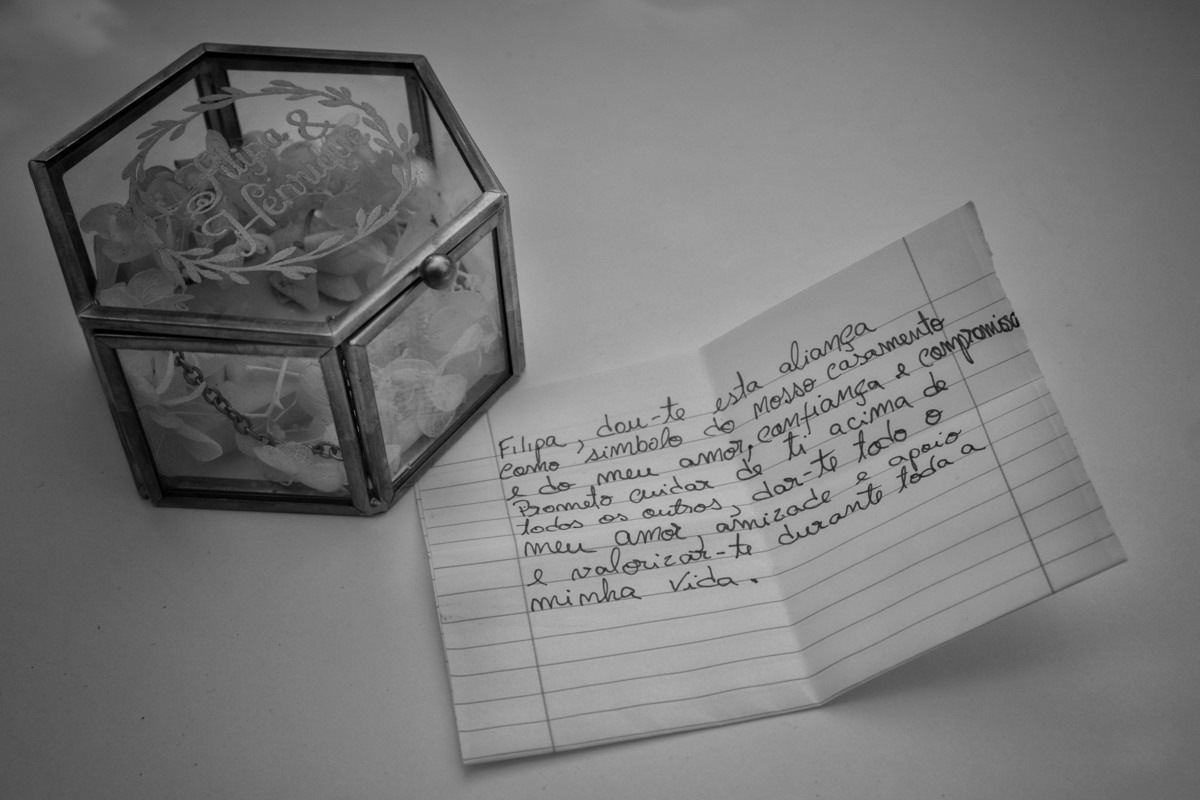 Filipa &
Hernâni
Filipa, dou-te esta aliança
como simbolo do nosso casamento
e do meu amor, confiança e compromisso
Prometo cuidar de ti acima de
todos os outros, dar-te todo o
meu amor, amizade e apoio
e valorizar-te durante toda a
minha vida.